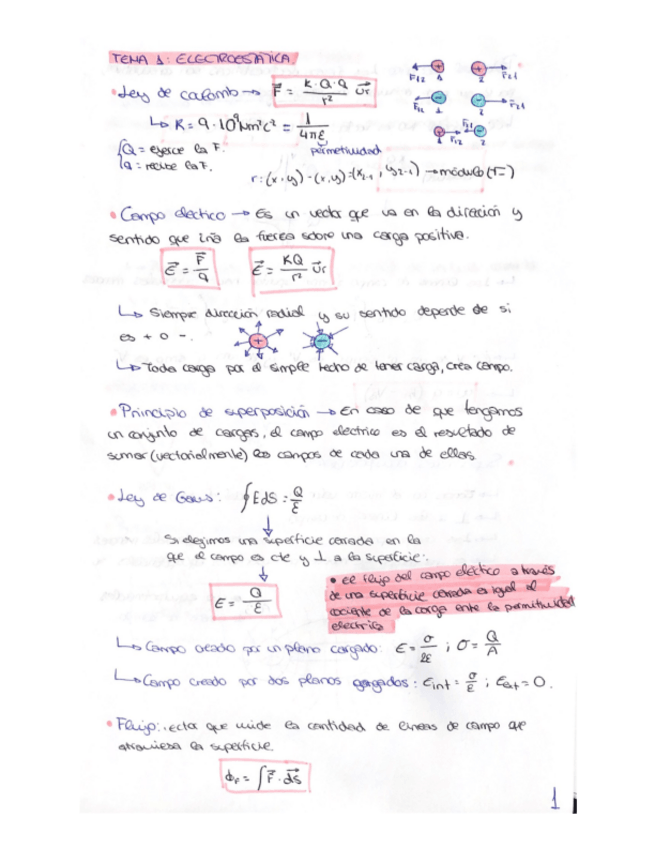 TEMA 1: ELECTROESTATICA
• Ley de coulomb → F⃗ = K·Q·q / r² u⃗r
↳ K = 9·10⁹ Nm²C² = 1 / 4πε
permetividad
{Q = ejerce la F.
{q = recibe la F.
r: (x,y) - (x,y) = (x2-1, y2-1) → módulo (r=)
F12 1 2 F21
F12 1 2 F21
1 F12 F21 2
• Campo electico → Es un vector que va en la dirección y
sentido que iría la fuerza sobre una carga positiva.
E⃗ = F⃗ / q E⃗ = KQ / r² u⃗r
↳ Siempre dirección radial y su sentido depende de si
es + o -.
↳ Toda carga por el simple hecho de tener carga, crea campo.
• Principio de superposición → En caso de que tengamos
un conjunto de cargas, el campo electrico es el resultado de
sumar (vectorialmente) los campos de cada una de ellas.
• Ley de Gauss: ∮EdS = Q / ε
Si elegimos una superficie cerrada en la
que el campo es cte y ⊥ a la superficie:
E = Q / ε
• El flujo del campo electico a través
de una superficie cerrada es igual al
cociente de la carga ente la permitividad
electrica
↳ Campo creado por un plano cargado: E = σ / 2ε ; σ = Q / A
↳ Campo creado por dos planos cargados: Eint = σ / ε ; Eext = 0.
• Flujo: ector que mide la cantidad de lineas de campo que
atraviesa la superficie.
ΦF = ∫F⃗·dS⃗
1